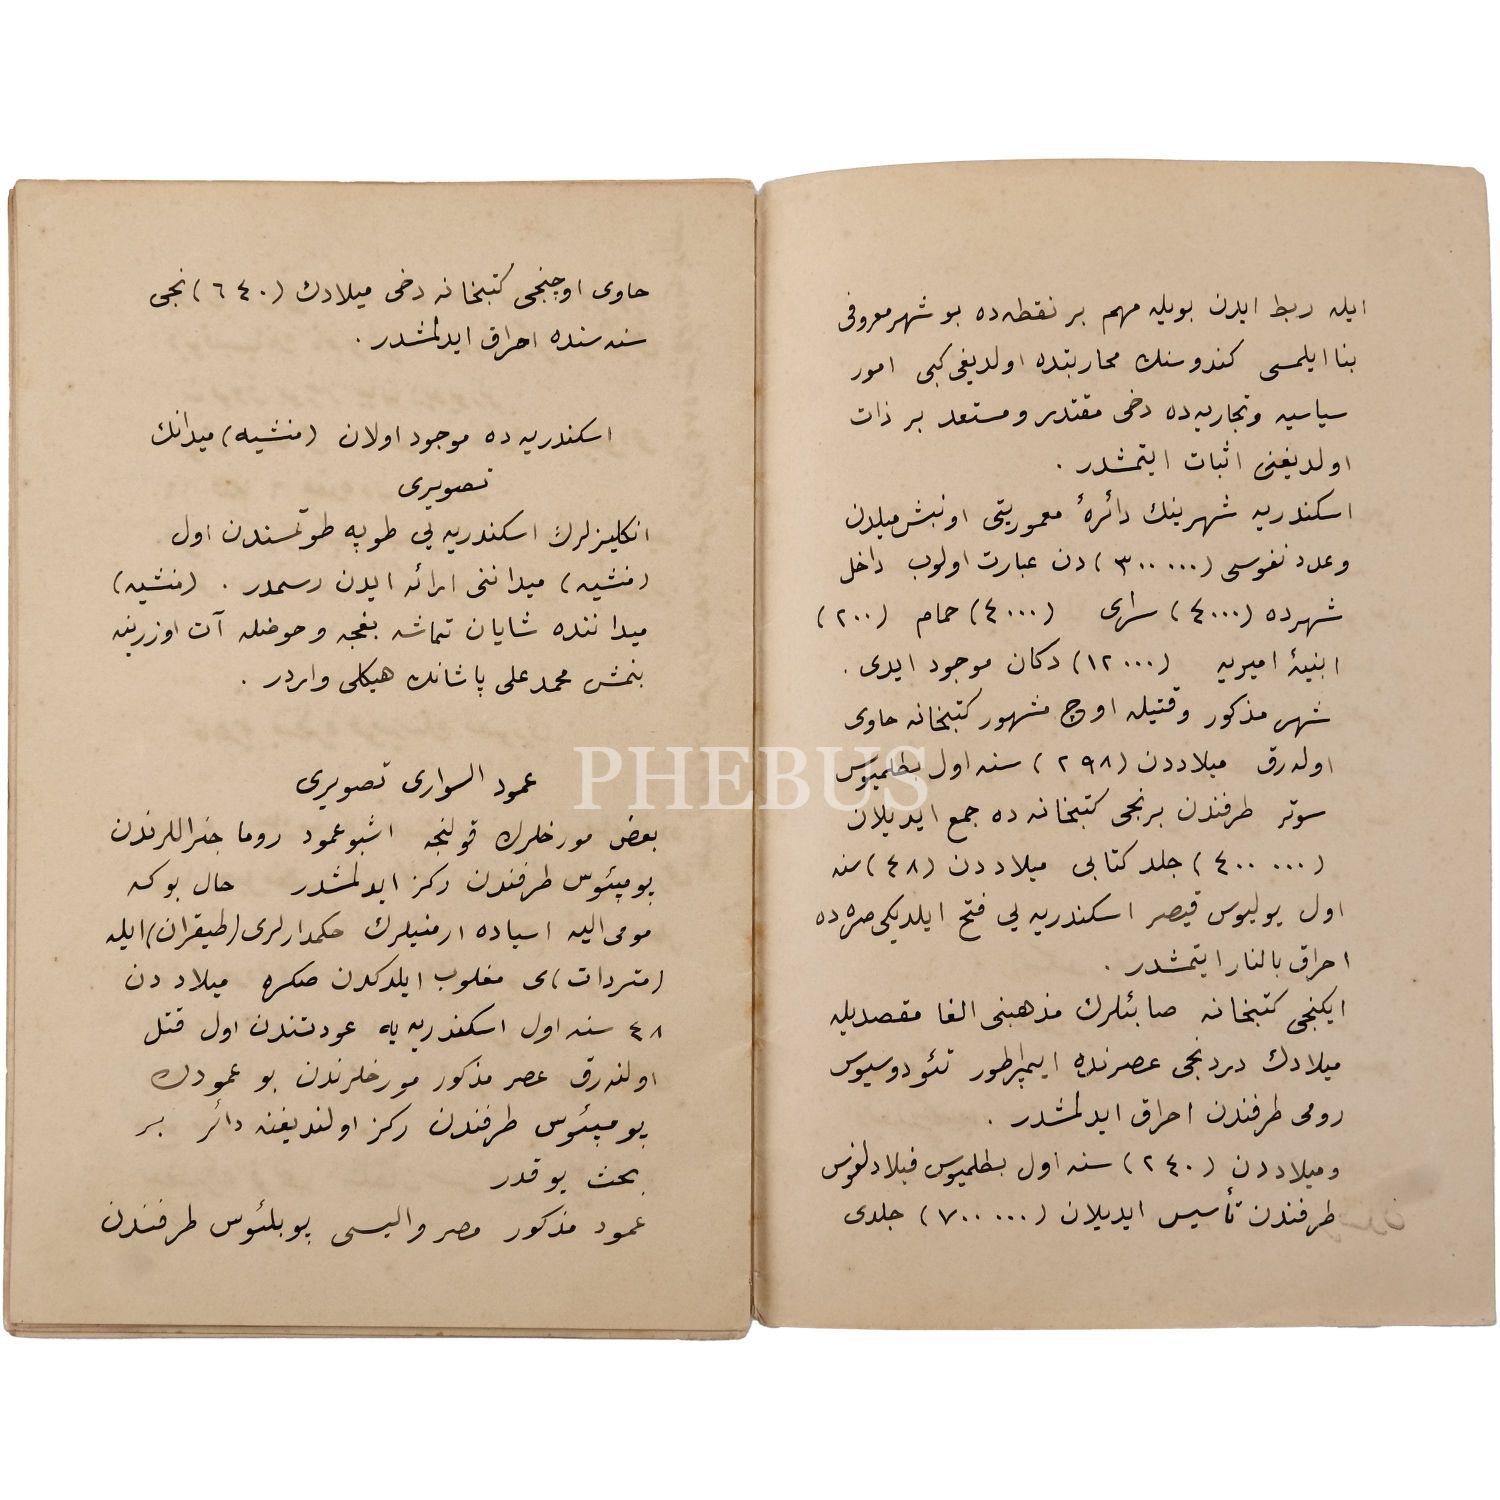 ایله ربط ایدن بویله مهم بر نقطه‌ده بو شهر معروفی
بنا ایلمسی کندوسنك محاربتده اولدیغی کبی امور
سیاسیه وتجاریه‌ده دخی مقتدر ومستعد بر ذات
اولدیغنی اثبات ایتمشدر .
اسکندریه شهرینك دائرهٔ معموریتی اونبش میلدن
وعدد نفوسی (٣٠٠٠٠٠) دن عبارت اولوب داخل
شهرده (٤٠٠٠) سرای (٤٠٠٠) حمام (٢٠٠)
ابنیهٔ امیریه (١٢٠٠٠) دکان موجود ایدی .
شهر مذکور وقتیله اوچ مشهور کتبخانه حاوی
اوله‌رق میلاددن (٢٩٨) سنه اول بطلمیوس
سوتر طرفندن برنجی کتبخانه ده جمع ایدیلان
(٤٠٠٠٠٠) جلد کتابی میلاددن (٤٨) سنه
اول یولیوس قیصر اسکندریه یی فتح ایلدیکی صره‌ده
احراق بالنار ایتمشدر .
ایکنجی کتبخانه صابئلرك مذهبنی الغا مقصدیله
میلادك دردنجی عصرنده ایمپراطور تئودوسیوس
رومی طرفندن احراق ایدلمشدر .
ومیلاددن (٢٤٠) سنه اول بطلمیوس فیلادلفوس
طرفندن تأسیس ایدیلان (٧٠٠٠٠٠) جلدی
حاوی اوچنجی کتبخانه دخی میلادك (٦٤٠) نجی
سنه سنده احراق ایدلمشدر .
اسکندریه ده موجود اولان (منشیه) میدانك
تصویری
انکلیزلرك اسکندریه یی طوپه طوتمسندن اول
(منشیه) میداننی ارائه ایدن رسمدر . (منشیه)
میداننده شایان تماشه بغچه وحوضله آت اوزرینه
بنمش محمد علی پاشانك هیکلی واردر .
عمود السواری تصویری
بعض مورخلرك قولنجه اشبو عمود روما جنراللرندن
پومپئوس طرفندن رکز ایدلمشدر حال بوکه
مومی الیه اسیاده ارمنیلرك حکمدارلری (طیقران) ایله
(متردات)ی مغلوب ایلدکدن صکره میلاددن
٤٨ سنه اول اسکندریه یه عودتندن اول قتل
اولنه‌رق عصر مذکور مورخلرندن بو عمودك
پومپئوس طرفندن رکز اولندیغنه دائر بر
بحث یوقدر
عمود مذکور مصر والیسی پوبلئوس طرفندن
PHEBUS